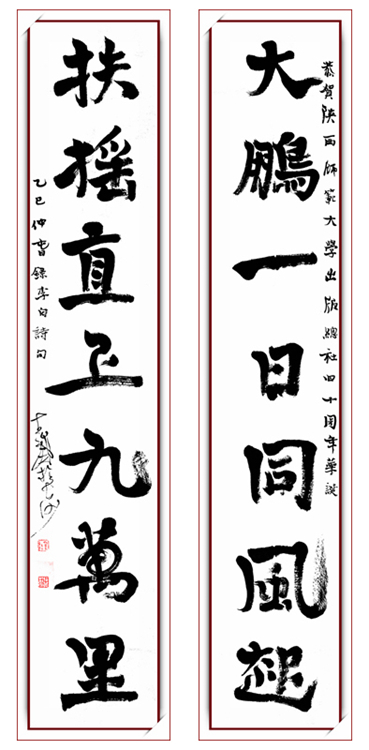 恭賀陝西師範大學出版總社四十周年華誕
大鵬一日同風起
扶搖直上九萬里
乙巳仲春錄李白詩句